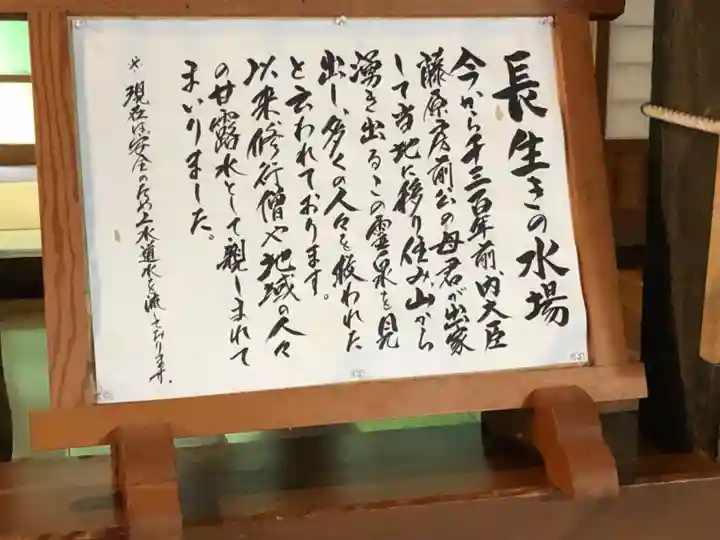 長生きの水場
今から千三百年前、内大臣
藤原房前公の母君が出家
して当地に移り住み、山から
湧き出るこの霊泉を見
出し、多くの人々を救われた
と云われております。
以来、修行僧や地域の人々
の甘露水として親しまれて
まいりました。
現在は安全のため上水道水を流しております。